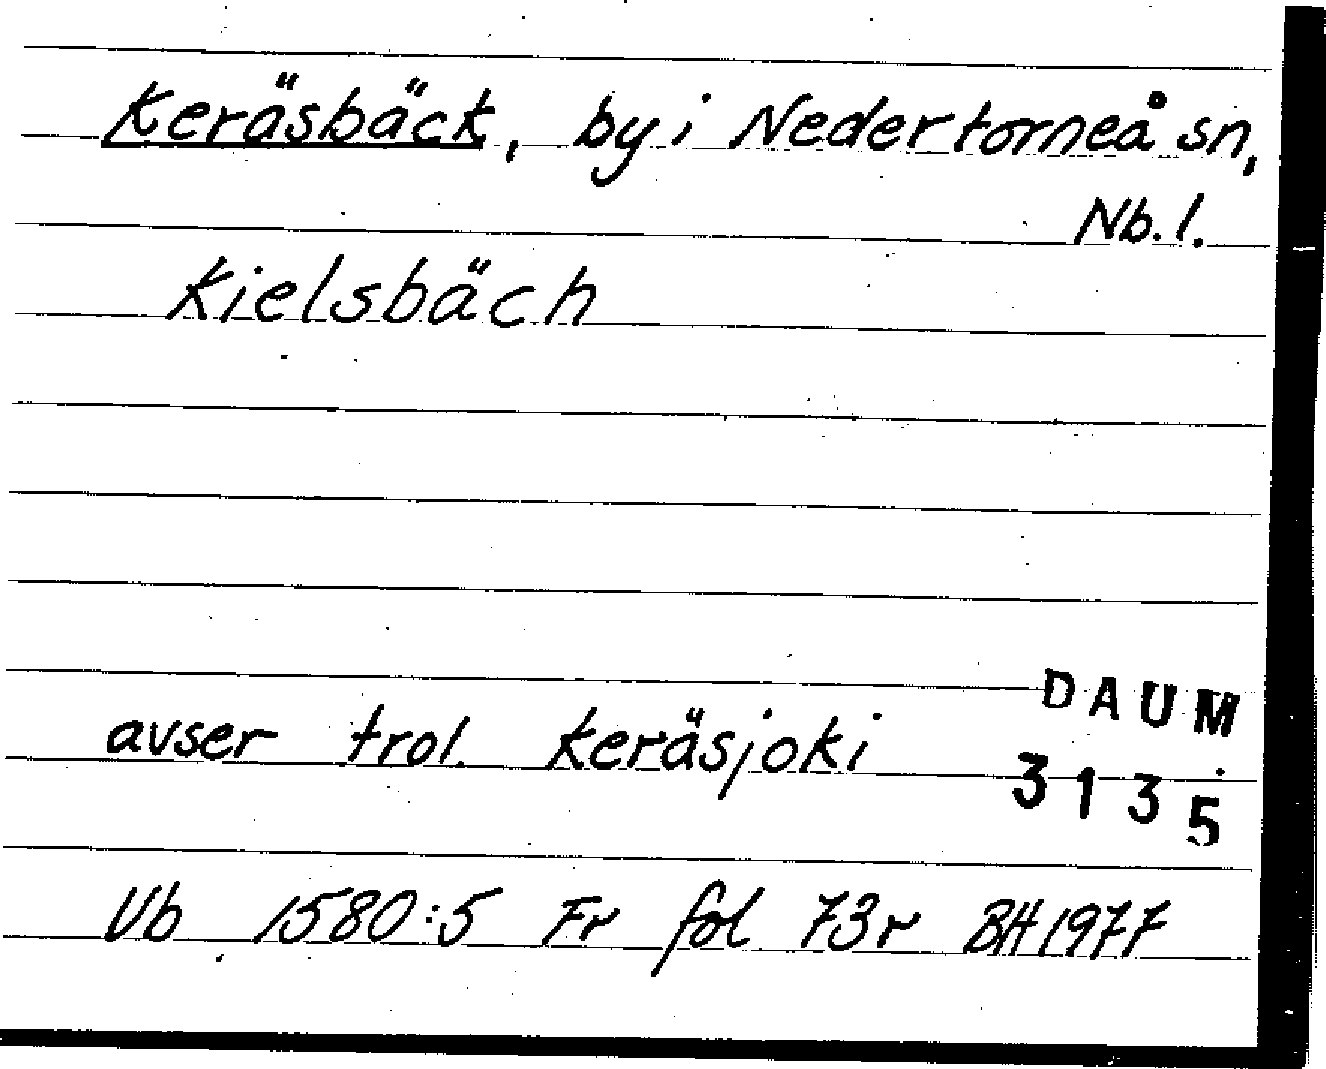 Keräsbäck, by i Nedertorneå sn,
Nb. l.
Kielsbäch
DAUM
avser trol. Keräsjoki
3135
Vb 1580:5 Fr fol 73r BH 1977